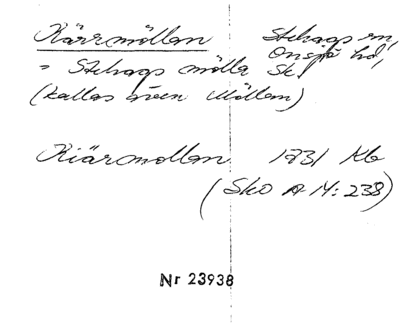 Kärrmöllan Stehags sn,
Onsjö hd,
= Stehags mölla Sk
(kallas även Möllan)
Kiärmollan 1731 Kb
(Sko A IV: 238)
Nr 23938